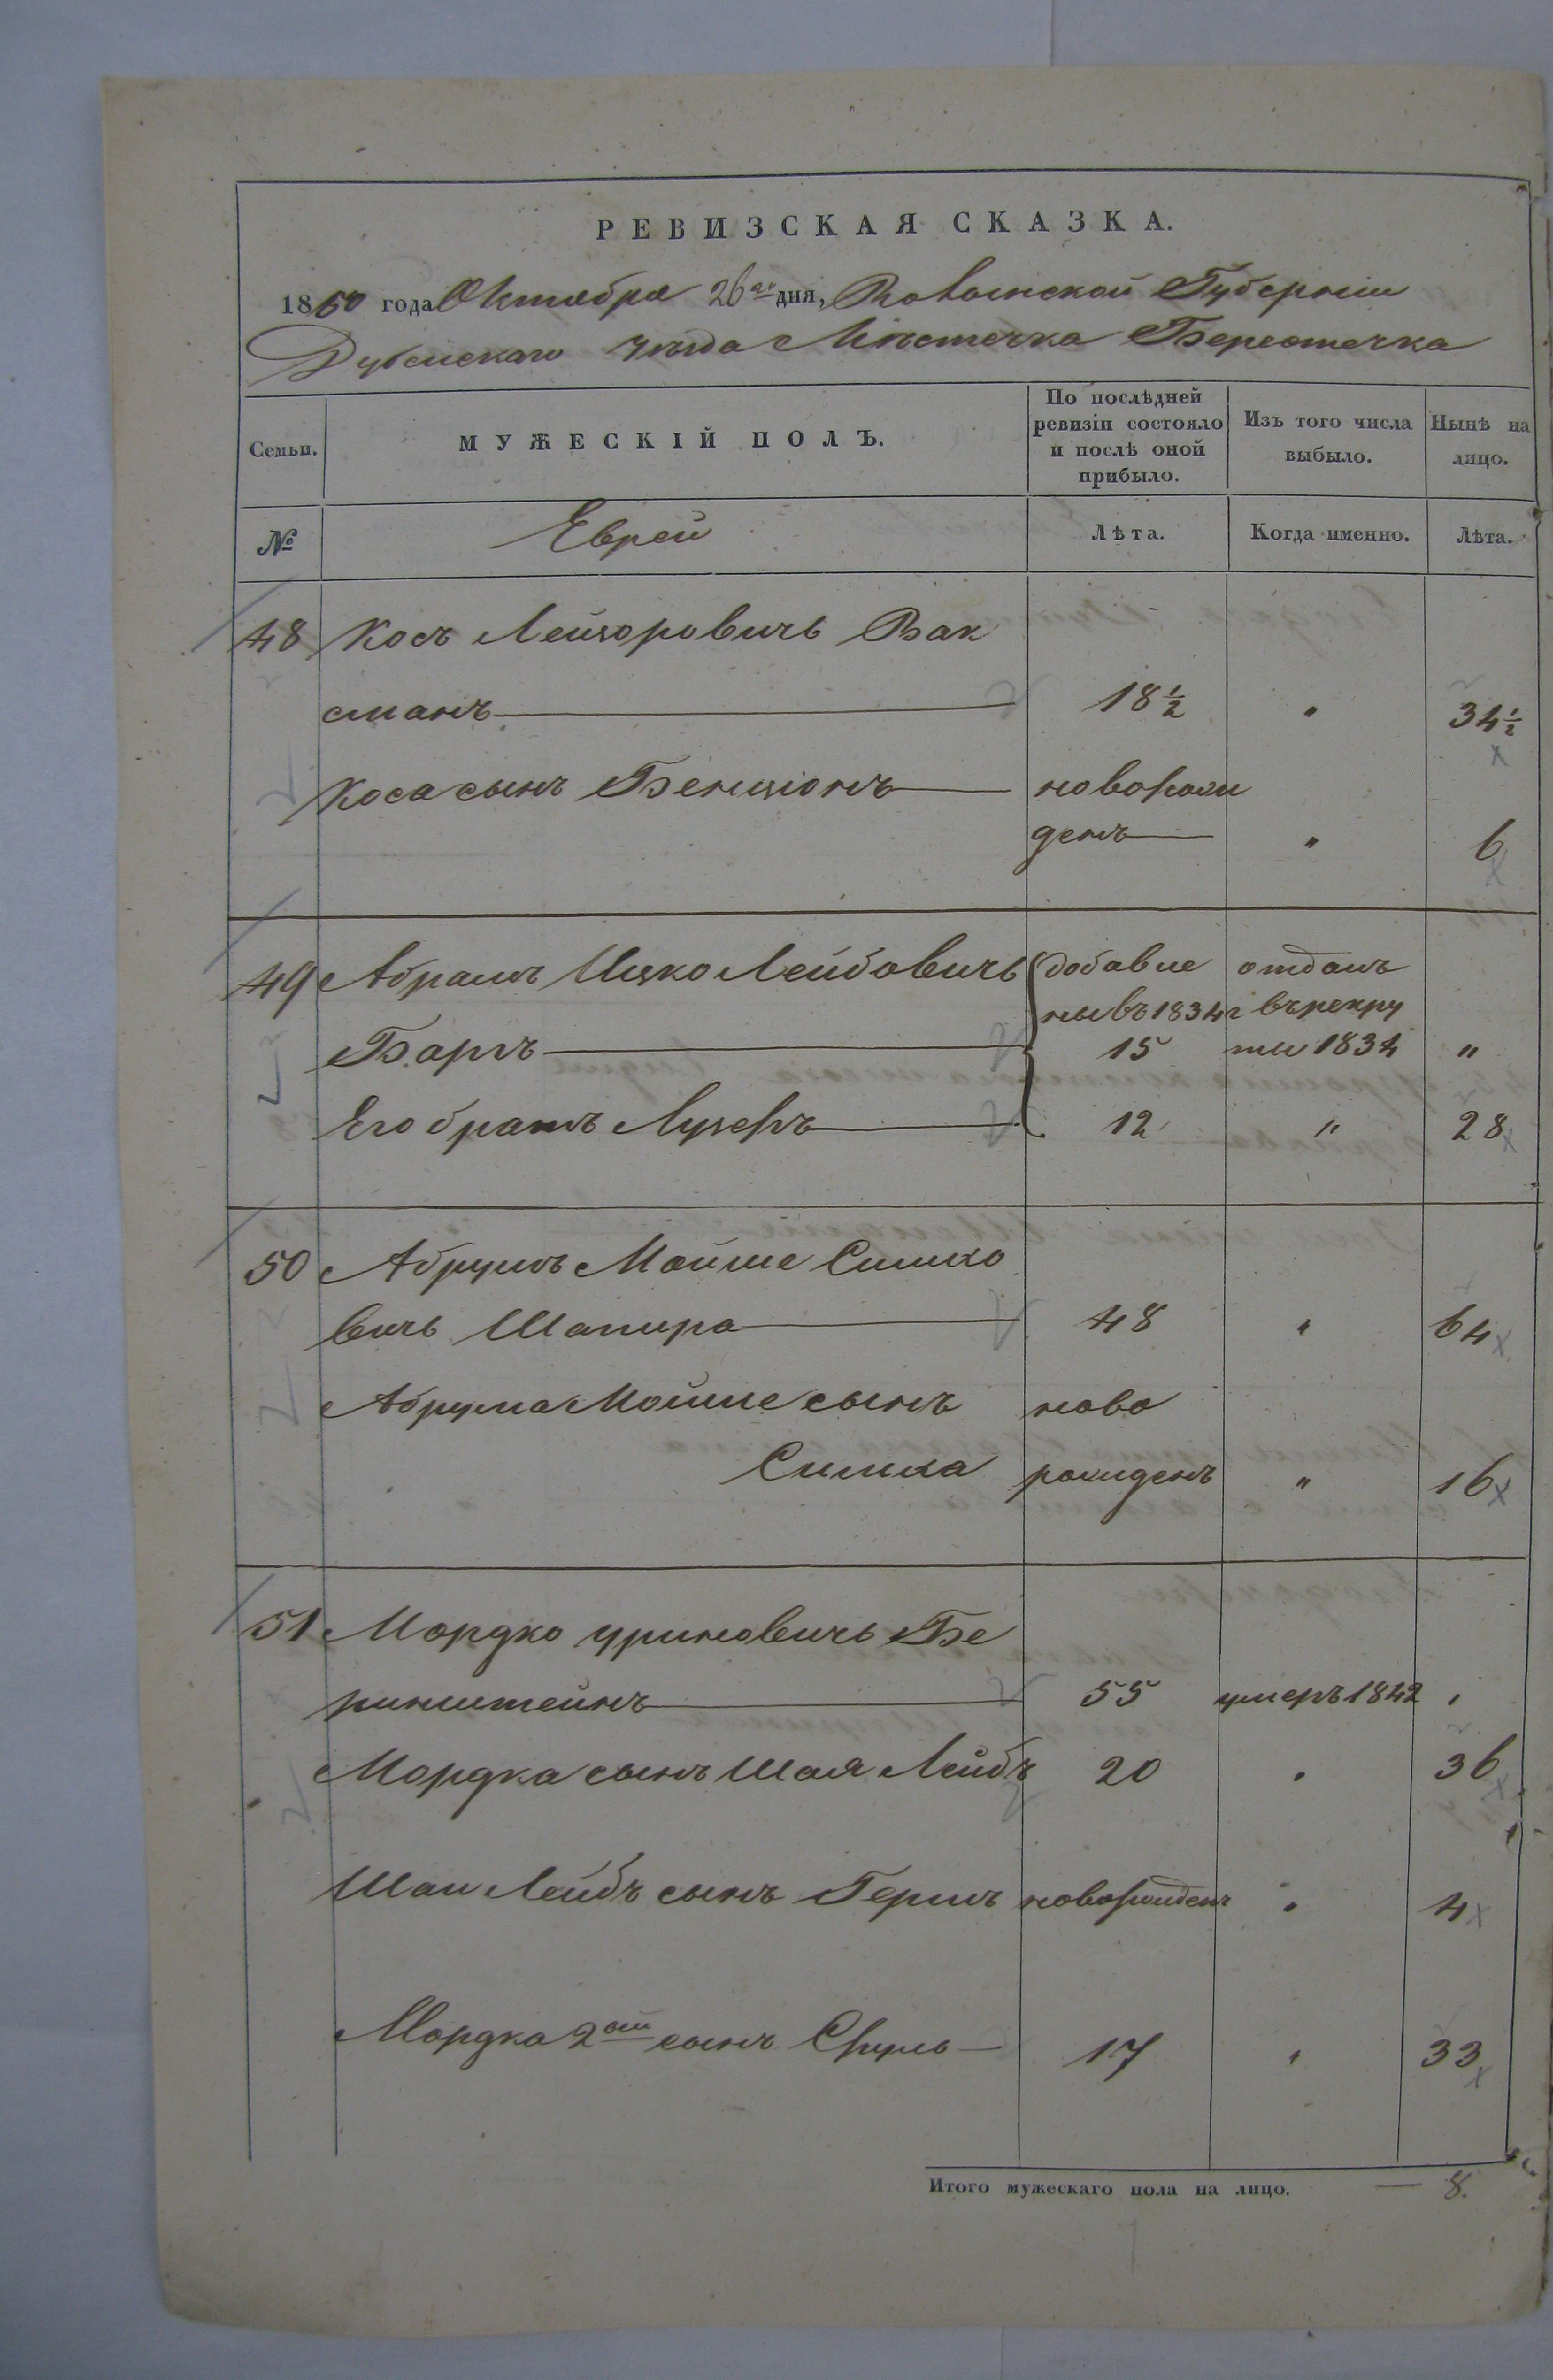 РЕВИЗСКАЯ СКАЗКА.
1850 года Октября 26го дня, Волынской Губерніи
Дубенскаго уѣзда Мѣстечка Берестечка
Семьи.
МУЖЕСКІЙ ПОЛЪ.
По послѣдней ревизіи состояло и послѣ оной прибыло.
Изъ того числа выбыло.
Нынѣ на лицо.
№ Евреи Лѣта. Когда именно. Лѣта.
48 Косъ Лейзоровичъ Вак
сманъ 18½ " 34½
Коса сынъ Бенціонъ новорож
денъ " 6
49 Абрамъ Ицко Лейбовичъ добавле отданъ
ны въ 1834г въ рекру
Баръ 15 ты 1834 "
Его братъ Лузеръ 12 " 28
50 Абрумъ Мойше Симхо
вичъ Шапира 48 " 64
Абрума Мойше сынъ ново
Симха рожденъ " 16
51 Мордко уриновичъ Бе
ринштейнъ 55 умеръ 1842 "
Мордка сынъ Шая Лейбъ 20 " 36
Шаи Лейбъ сынъ Гершъ новорожденъ " 4
Мордка 2ой сынъ Сруль 17 " 33
Итого мужескаго пола на лицо. — 8.